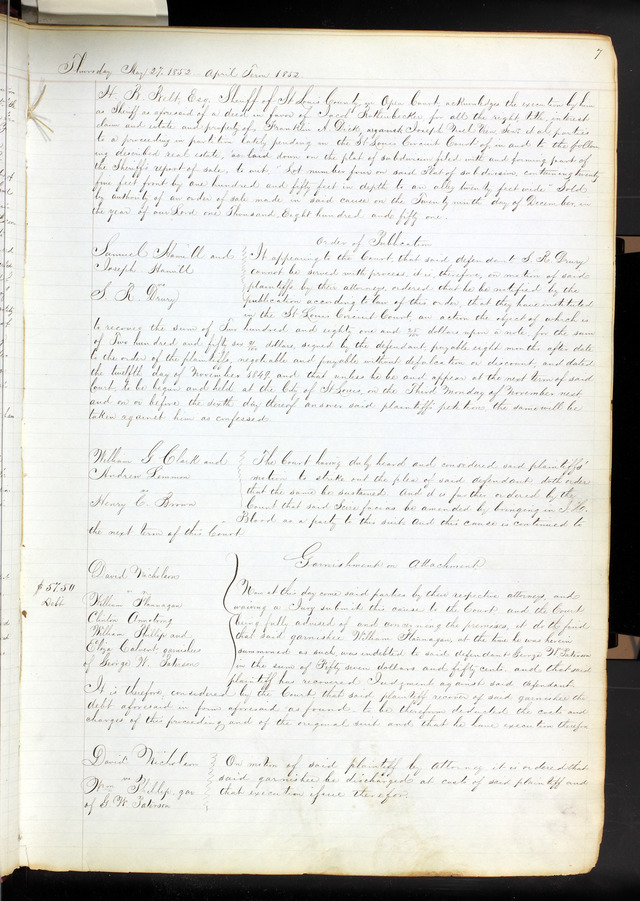 7
Thursday May 27, 1852 April Term 1852
H. R. Relt, Esq, Sheriff of St Louis County in Open Court, acknowledges the execution by him
as Sheriff as aforesaid of a deed in favor of Jacob for all the right, title, interest
claim and estate and property of Franklin A Dick, against Joseph et al, parties
to a proceeding in partition lately pending in the St Louis Circuit Court of, in and to the follow
ing described real estate, as laid down on the plat of subdivision filed with and forming part of
the Sheriffs report of sale, to wit: "Lot number four on said Plat of subdivision, containing twenty
five feet front by one hundred and fifty feet in depth to an alley twenty feet wide." Sold
by authority of an order of sale made in said cause on the Twenty ninth day of December, in
the year of our Lord one Thousand Eight hundred and fifty one.
Order of Publication
Samuel Hamill and
Joseph Hamill
vs
S. R. Drury
It appearing to the Court that said defendant S. R. Drury
cannot be served with process, it is, therefore, on motion of said
plaintiffs by their attorneys ordered that he be notified by the
publication according to law of this order, that they have instituted
in the St Louis Circuit Court an action the object of which is
to recover the sum of Two hundred and eighty one and dollars upon a note for the sum
of Two hundred and fifty six dollars, signed by the defendant, payable eight months after date
to the order of the plaintiffs, negotiable and payable without defalcation or discount, and dated
the twelfth day of November 1849, and that unless he be and appear at the next term of said
Court, to be begun and held at the City of St Louis, on the Third Monday of November next
and on or before the sixth day thereof answer said plaintiffs petition the same will be
taken against him as confessed.
William G Clark and
Andrew Lemmon
vs
Henry C. Brown
The Court having duly heard and considered said plaintiffs'
motion to strike out the plea of said defendant doth order
that the same be sustained. And it is further ordered by the
Court that said Scire facias be amended by bringing in
Blood as a party to this suit. And this cause is continued to
the next term of this Court
Garnishment on Attachment
$57.50
Debt
David Nicholson
vs
William Flannagan
Christian Armstrong
William Phillip and
Eliza Calvert garnishees
of George W. Paterson
Now at this day come said parties by their respective attorneys, and
waiving a Jury submit this cause to the Court and the Court
being fully advised of and concerning the premises, it do the find
that said garnishee William Flannagan, at the time he was herein
summoned as such, was indebted to said defendant George W Paterson
in the sum of Fifty seven dollars and fifty cents and that said
plaintiff has recovered Judgment against said defendant.
It is therefore, considered by the Court that said plaintiff recover of said garnishee the
debt aforesaid in form aforesaid as found, to be therefrom deducted the costs and
charges of this proceeding and of the original suit and that he have execution therefor
David Nicholson
vs
Wm Phillip, gar
of G. W. Paterson
On motion of said plaintiff by Attorney it is ordered that
said garnishee be discharged at costs of said plaintiff and
that execution issue therefor.